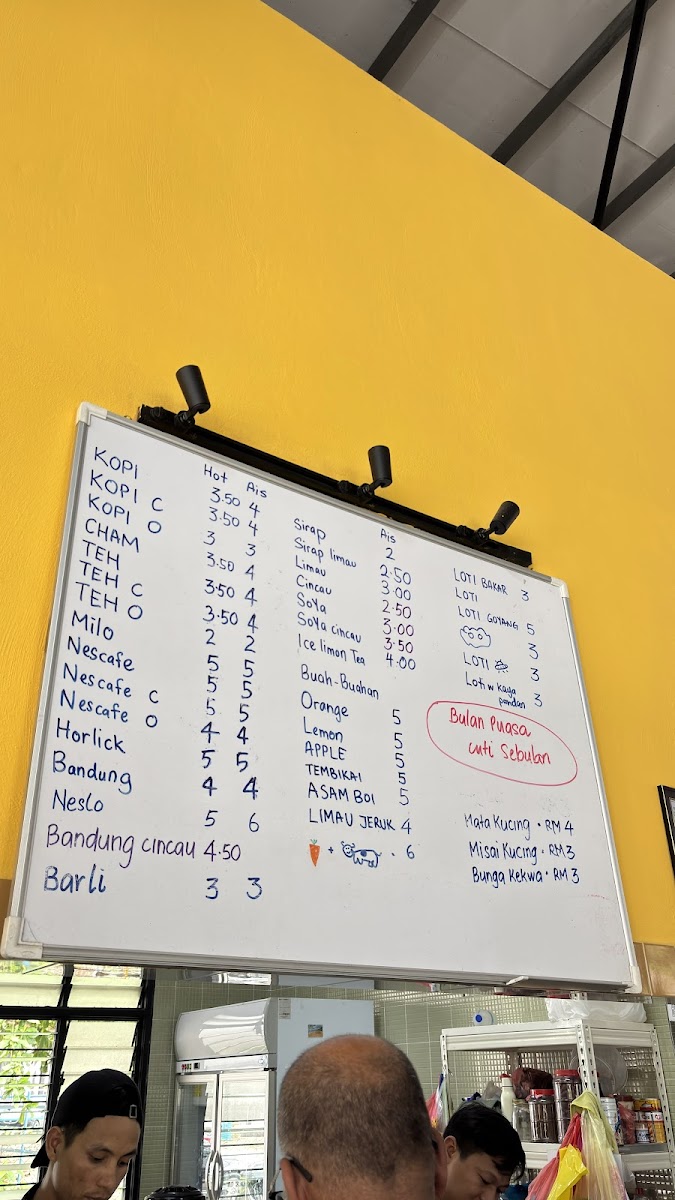 Hot Ais
KOPI 3.50 4
KOPI C 3.50 4
KOPI O 3 3
CHAM 3.50 4
TEH 3.50 4
TEH C 3.50 4
TEH O 2 2
Milo 5 5
Nescafe 5 5
Nescafe C 5 5
Nescafe O 4 4
Horlick 5 5
Bandung 4 4
Neslo 5 6
Bandung cincau 4.50
Barli 3 3
Ais
Sirap 2
Sirap limau 2.50
Limau 3.00
Cincau 2.50
Soya 3.00
Soya cincau 3.50
Ice limon Tea 4.00
Buah-Buahan
Orange 5
Lemon 5
APPLE 5
TEMBIKAI 5
ASAM BOI 5
LIMAU JERUK 4
+ . 6
LOTI BAKAR 3
LOTI
LOTI GOYANG 5
3
LOTI 3
Loti w kaya
pandan 3
Bulan Puasa
cuti Sebulan
Mata Kucing • RM 4
Misai Kucing • RM 3
Bunga Kekwa • RM 3